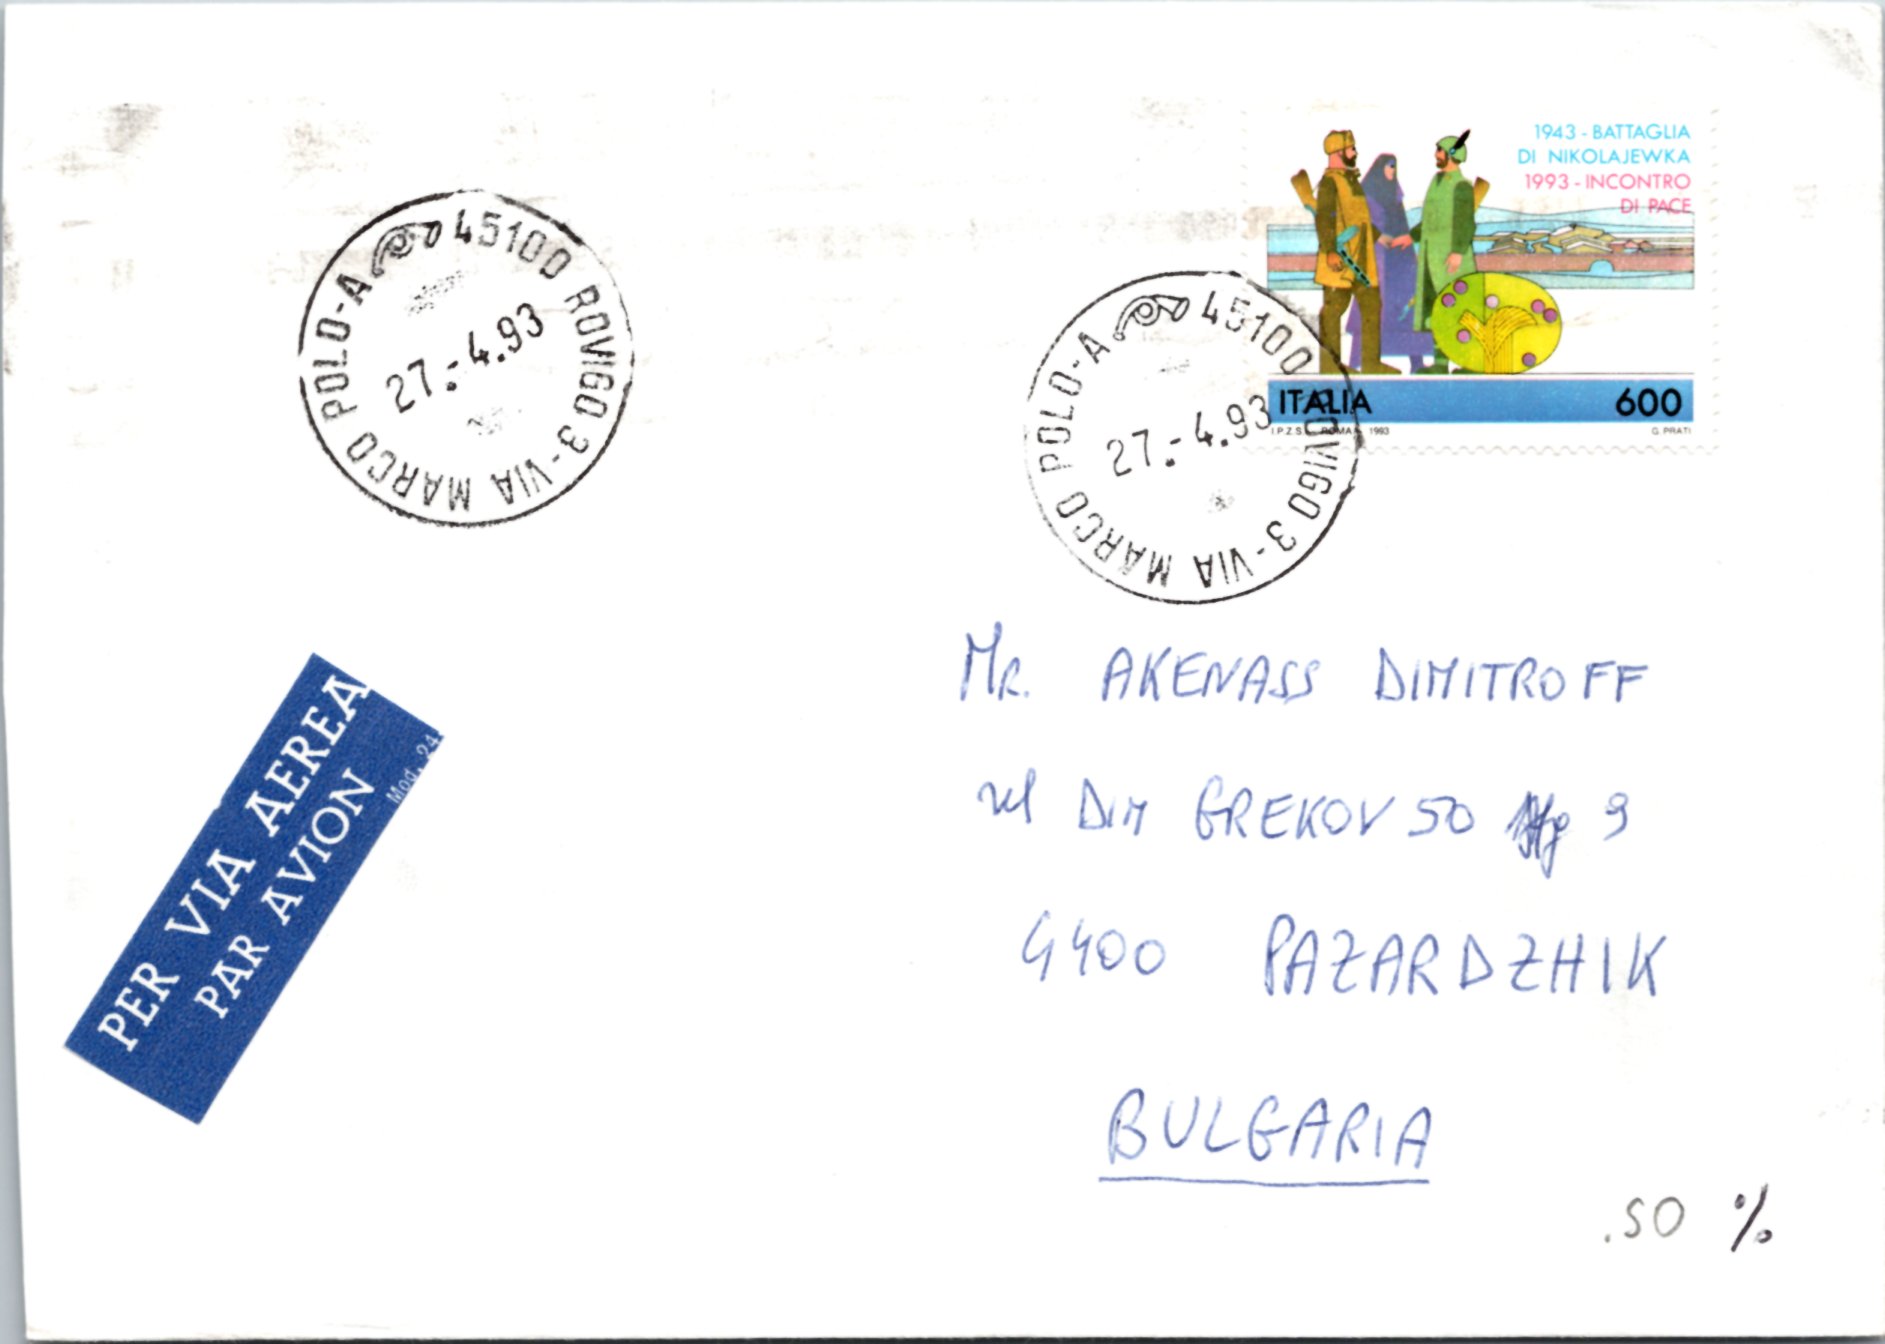 1943 - BATTAGLIA
DI NIKOLAJEWKA
1993 - INCONTRO
DI PACE
ITALIA 600
I.P.Z.S. ROMA 1993 G. PRATI
45100 ROVIGO 3 - VIA MARCO POLO - A
27.-4.93
45100 ROVIGO 3 - VIA MARCO POLO - A
27.-4.93
PER VIA AEREA
PAR AVION
Mod. 24
MR. AKENASS DIMITROFF
DIM GREKOV 50 9
4400 PAZARDZHIK
BULGARIA
.50 %